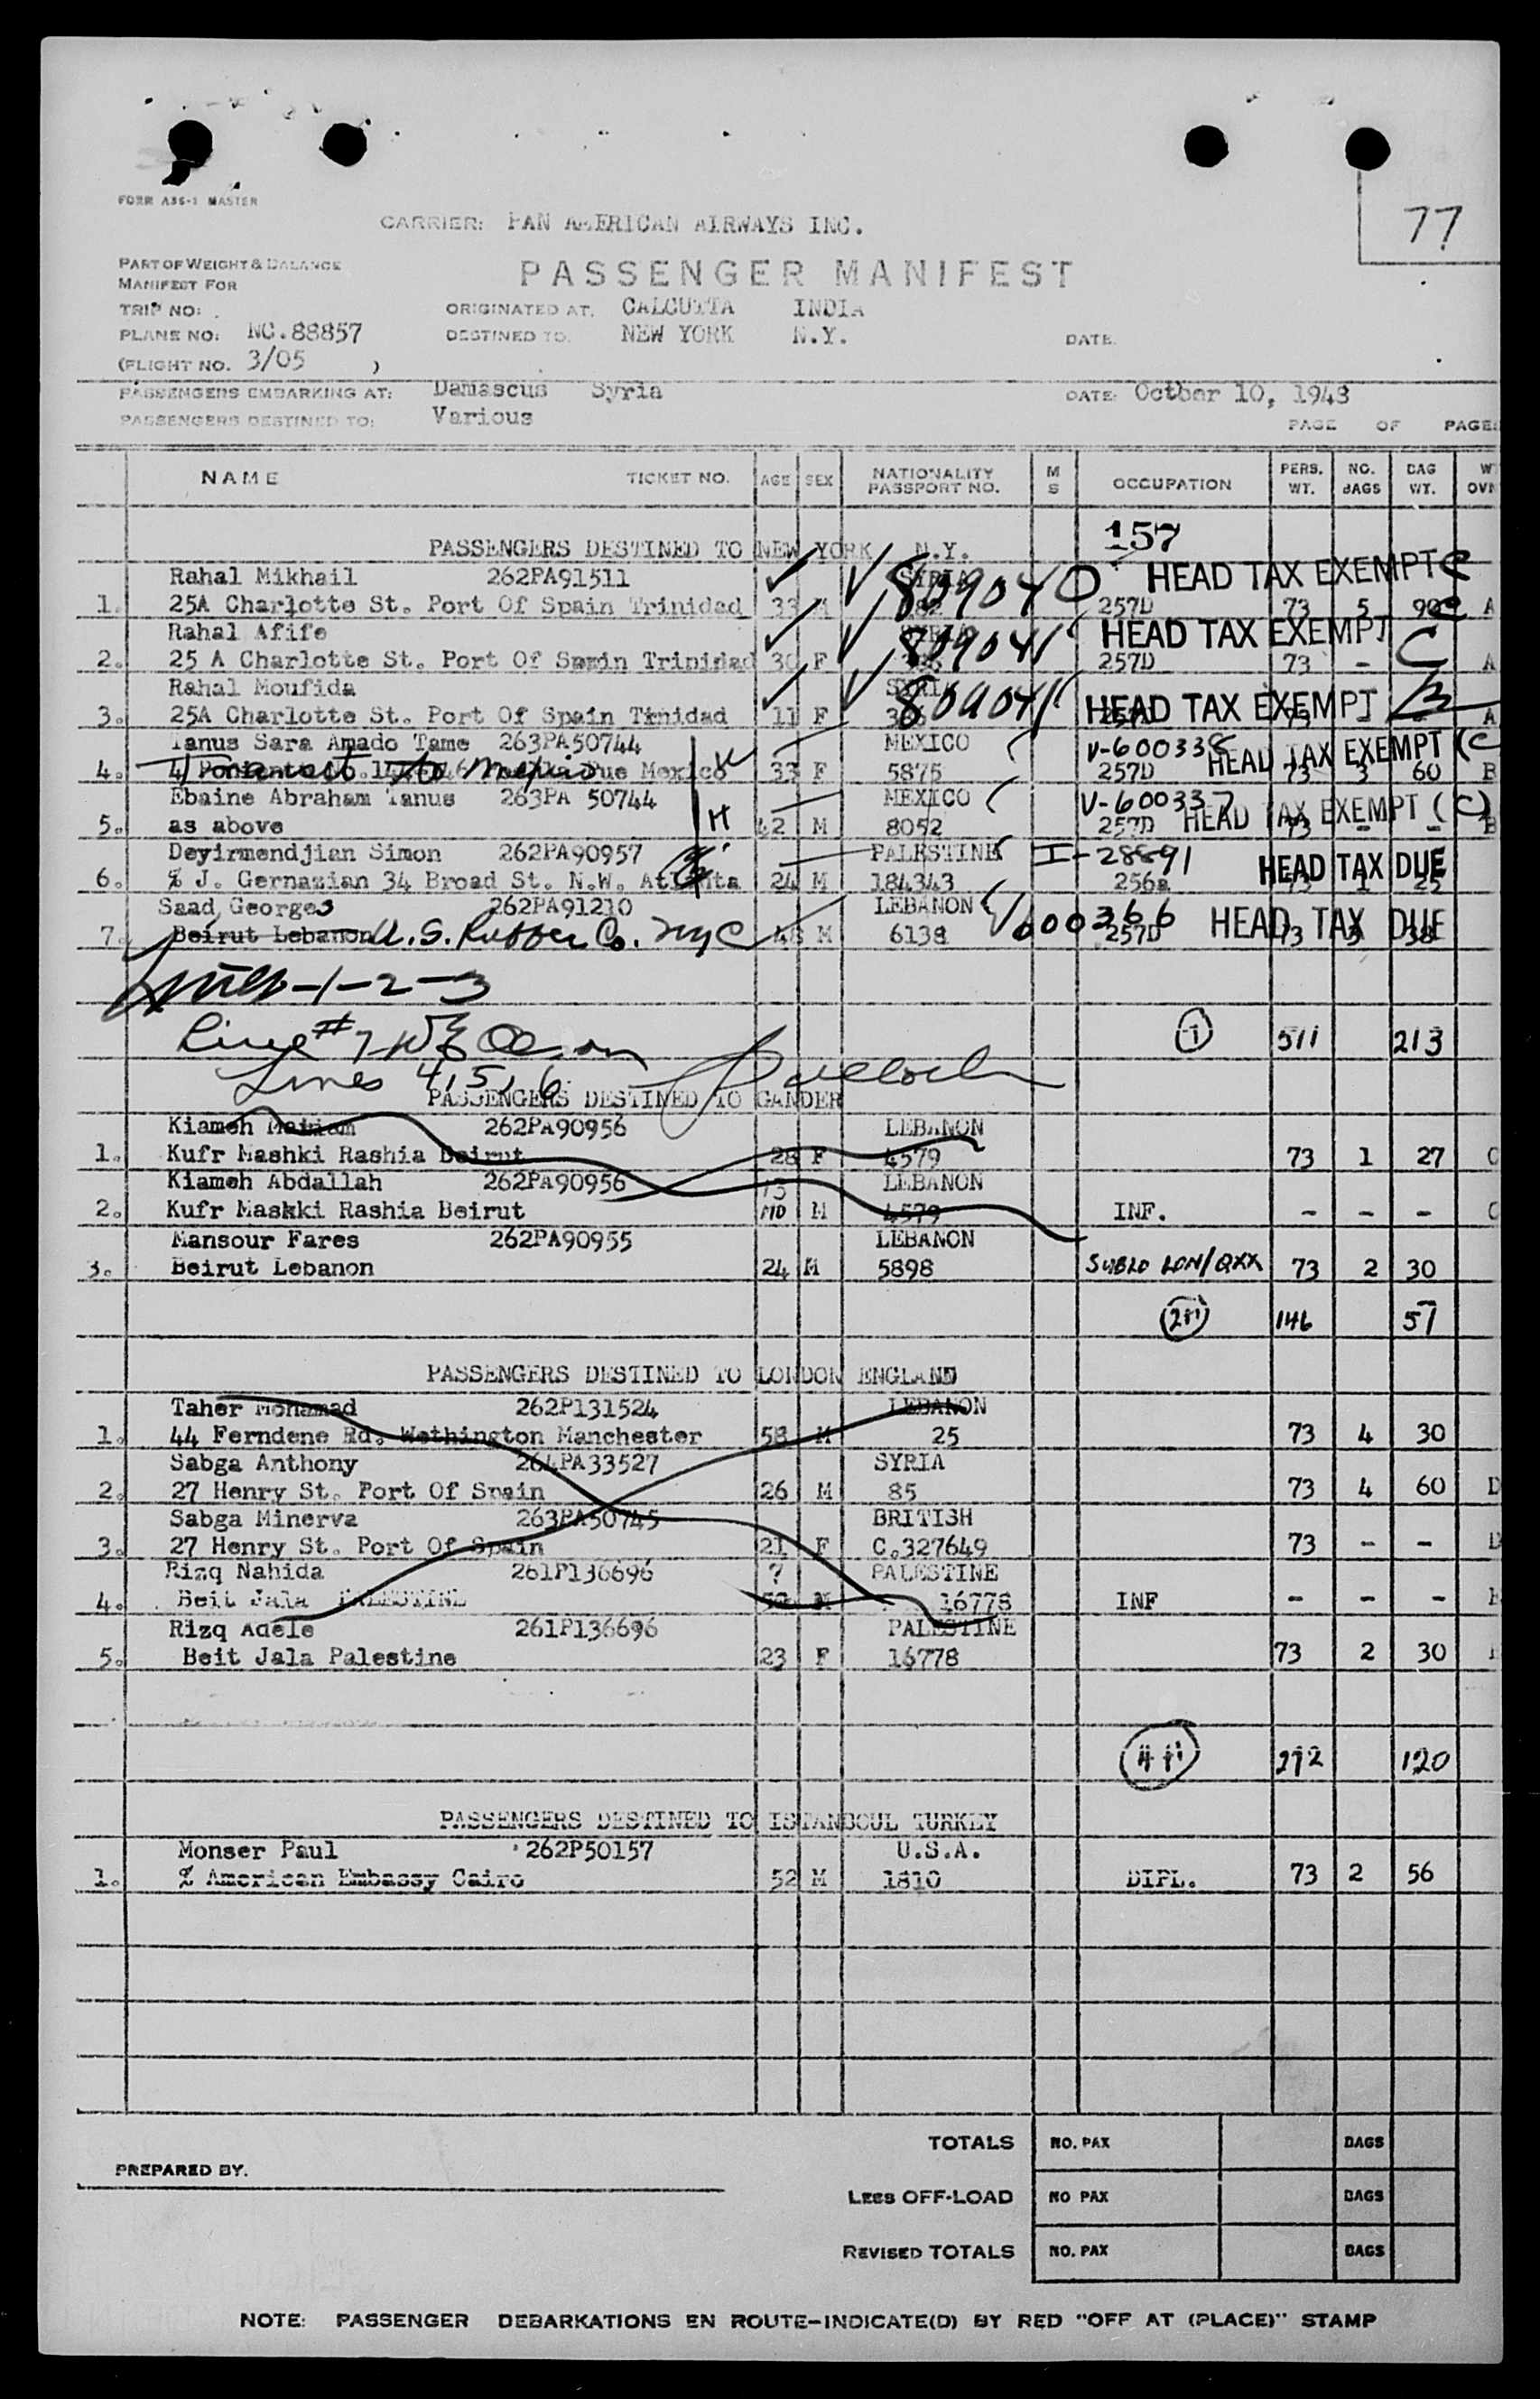 FORM A36-1 MASTER
77
CARRIER: PAN AMERICAN AIRWAYS INC.
PART OF WEIGHT & BALANCE
MANIFEST FOR
PASSENGER MANIFEST
TRIP NO:
ORIGINATED AT. CALCUTTA INDIA
PLANE NO: NC.88857
DESTINED TO. NEW YORK N.Y.
DATE.
(FLIGHT NO. 3/05 )
PASSENGERS EMBARKING AT: Damascus Syria
DATE: Octber 10, 1948
PASSENGERS DESTINED TO: Various
PAGE OF PAGES
NAME TICKET NO. AGE SEX NATIONALITY PASSPORT NO. M S OCCUPATION PERS. WT. NO. BAGS BAG WT.
157
PASSENGERS DESTINED TO NEW YORK N.Y.
Rahal Mikhail 262PA91511 SYRIA 809040 HEAD TAX EXEMPT C
1. 25A Charlotte St. Port Of Spain Trinidad 33 M 257D 73 5 90 A
Rahal Afife 809041 HEAD TAX EXEMPT C
2. 25 A Charlotte St. Port Of Spain Trinidad 30 F 257D 73 - A
Rahal Moufida HEAD TAX EXEMPT
3. 25A Charlotte St. Port Of Spain Trnidad 11 F A
Tanus Sara Amado Tame 263PA50744 MEXICO V-600338 HEAD TAX EXEMPT (C
4. Transit to Mexico Pue Mexico 33 F 5875 257D 73 3 60 B
Ebaine Abraham Tanus 263PA 50744 MEXICO V-600337 HEAD TAX EXEMPT (C)
5. as above H 42 M 8052 257D 73 - - B
Deyirmendjian Simon 262PA90957 PALESTINE I-28891 HEAD TAX DUE
6. % J. Gernazian 34 Broad St. N.W. Atlanta 24 M 184343 256a 73 1 25
Saad Georges 262PA91210 LEBANON V600366 HEAD TAX DUE
7. Beirut Lebanon U.S. Rubber Co. NYC 48 M 6138 257D 73 3 38
-1-2-3
Line #7
7 511 213
Lines 4,5,6
PASSENGERS DESTINED TO GANDER
Kiameh Mariam 262PA90956 LEBANON
1. Kufr Mashki Rashia Beirut 28 F 4579 73 1 27 C
Kiameh Abdallah 262PA90956 13 LEBANON
2. Kufr Maskki Rashia Beirut MO M 4579 INF. - - - C
Mansour Fares 262PA90955 LEBANON
3. Beirut Lebanon 24 M 5898 SUBLO LON/QXX 73 2 30
2+1 146 57
PASSENGERS DESTINED TO LONDON ENGLAND
Taher Mohamad 262P131524 LEBANON
1. 44 Ferndene Rd. Wethington Manchester 58 M 25 73 4 30
Sabga Anthony 264PA33527 SYRIA
2. 27 Henry St. Port Of Spain 26 M 85 73 4 60 D
Sabga Minerva 263PA50745 BRITISH
3. 27 Henry St. Port Of Spain 21 F C.327649 73 - - D
Rizq Nahida 261P136696 ? PALESTINE
4. Beit Jala PALESTINE M 16778 INF - - -
Rizq Adele 261P136696 PALESTINE
5. Beit Jala Palestine 23 F 16778 73 2 30
4+1 292 120
PASSENGERS DESTINED TO ISTANBOUL TURKEY
Monser Paul 262P50157 U.S.A.
1. % American Embassy Cairo 52 M 1810 DIPL. 73 2 56
TOTALS NO. PAX BAGS
PREPARED BY.
LESS OFF-LOAD NO PAX BAGS
REVISED TOTALS NO. PAX BAGS
NOTE: PASSENGER DEBARKATIONS EN ROUTE-INDICATE(D) BY RED "OFF AT (PLACE)" STAMP